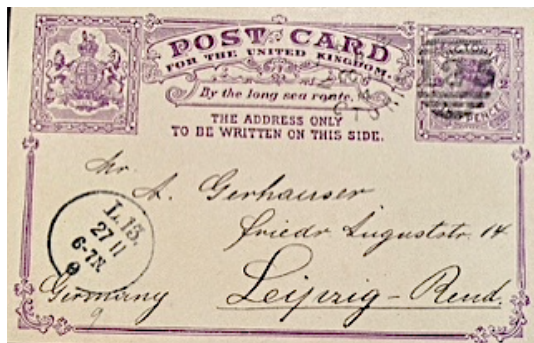 POST CARD
FOR THE UNITED KINGDOM.
By the long sea route.
THE ADDRESS ONLY
TO BE WRITTEN ON THIS SIDE.
VICTORIA
Mr.
A. Gerhauser
Friedr Auguststr. 14
Leipzig - Reud.
Germany
9
L. 13.
27 11
6-7N